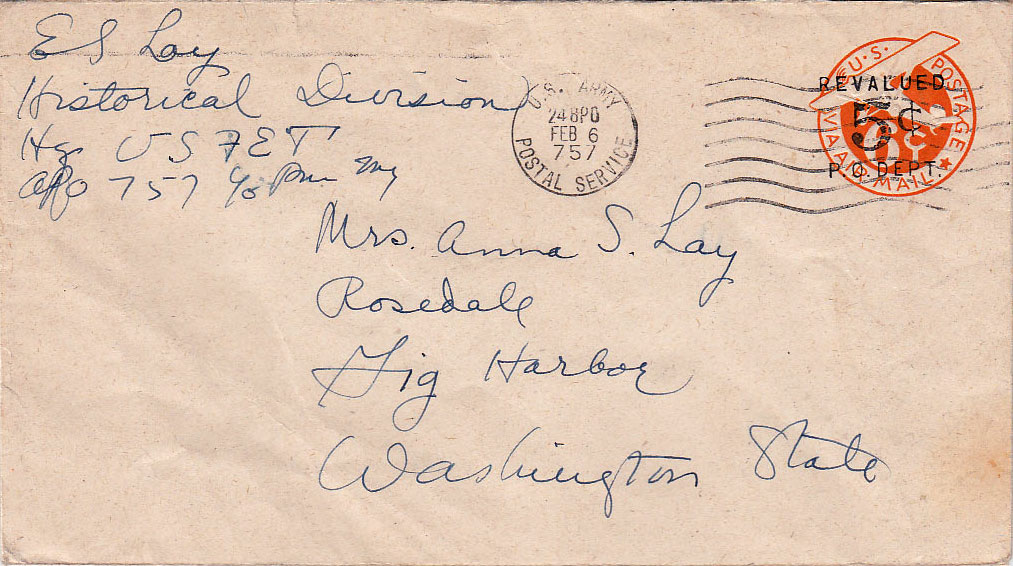 E S Lay
Historical Division
Hq U S F E T
APO 757 % P.M. NY
U.S. ARMY
24 8PO
FEB 6
757
POSTAL SERVICE
U.S. POSTAGE
REVALUED
5¢
6¢
P.O. DEPT.
VIA AIR MAIL
Mrs. Anna S. Lay
Rosedale
Gig Harbor
Washington State